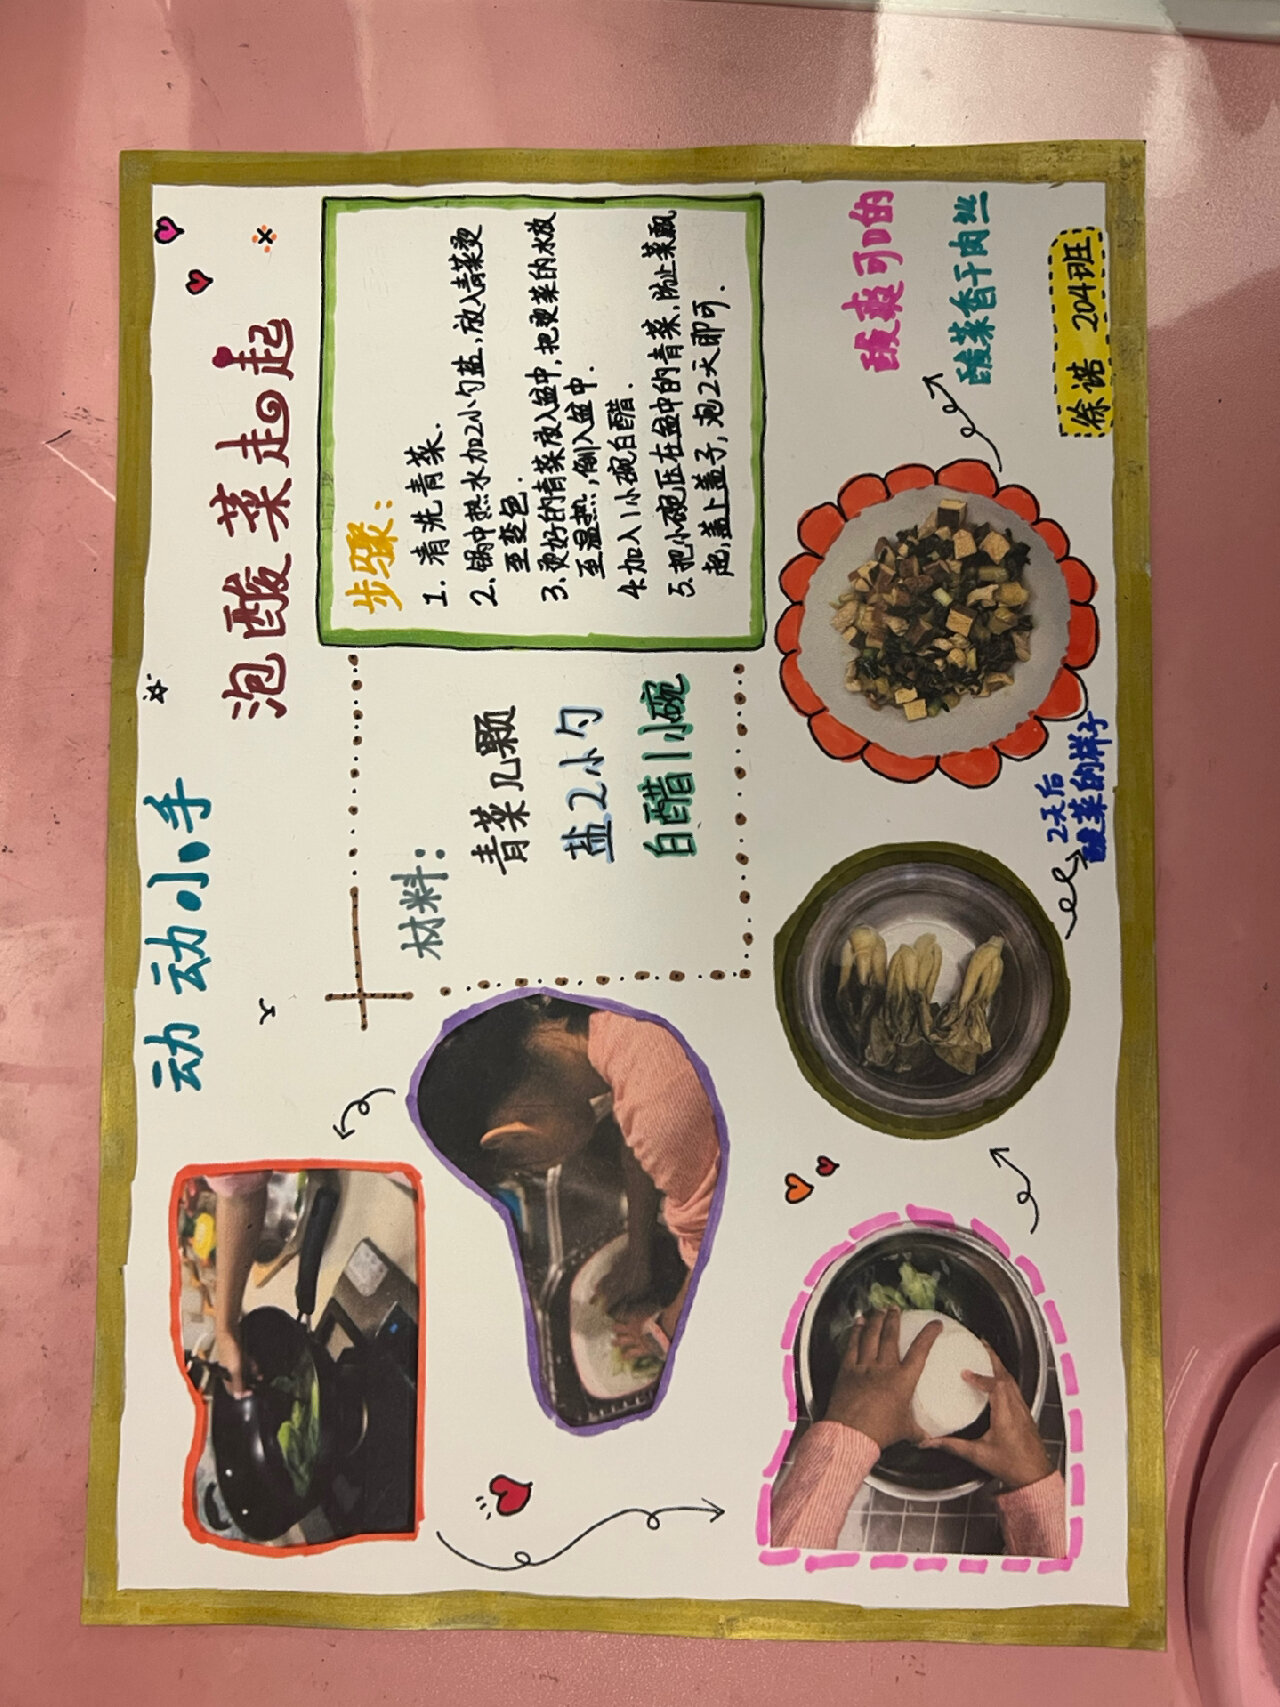 动动小手
泡酸菜走起
材料：
青菜几颗
盐2小勺
白醋1小碗
步骤：
1. 清洗青菜.
2. 锅中热水加2小勺盐,放入青菜烫
至变色.
3. 烫好的青菜放入盆中,把烫菜的水放
至温热,倒入盆中.
4. 加入1小碗白醋.
5. 把小碗压在盆中的青菜,防止菜飘
起,盖上盖子,泡2天即可.
2天后
酸菜的样子
酸爽可口的
酸菜香干肉丝
徐诺 204班